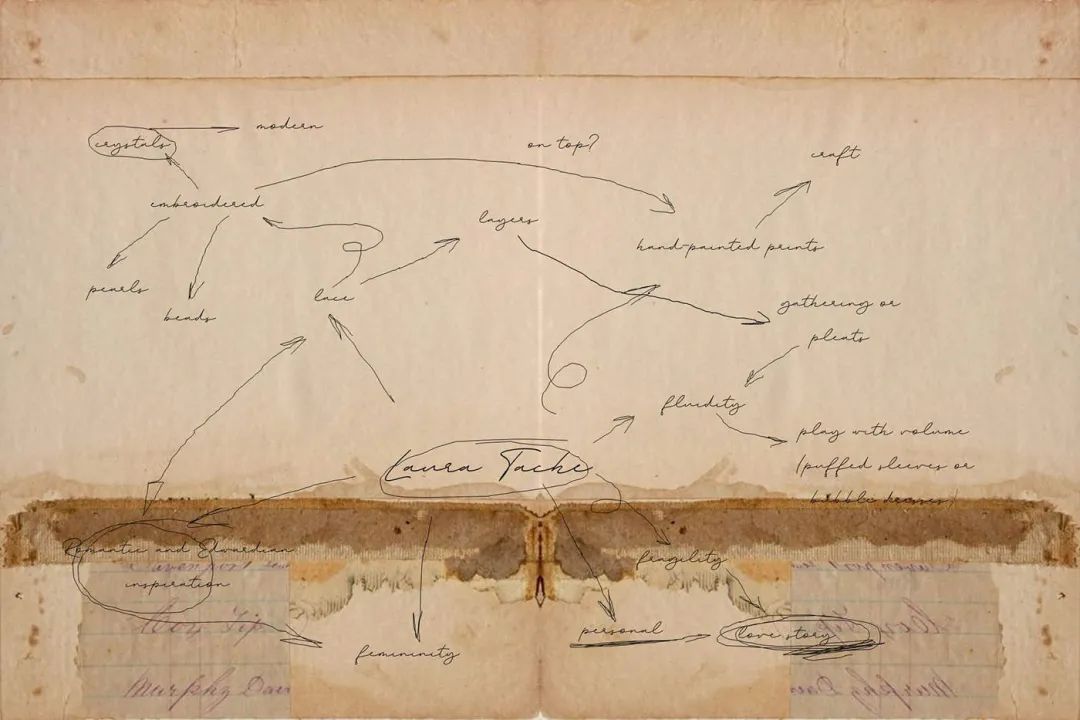 crystals
modern
on top?
craft
embroidered
layers
hand-painted prints
pearls
lace
gathering or
beads
pleats
fluidity
play with volume
(puffed sleeves or
bubble dresses)
Laura Tache
Romantic and Edwardian
inspiration
fragility
personal
love story
femininity
Murphy